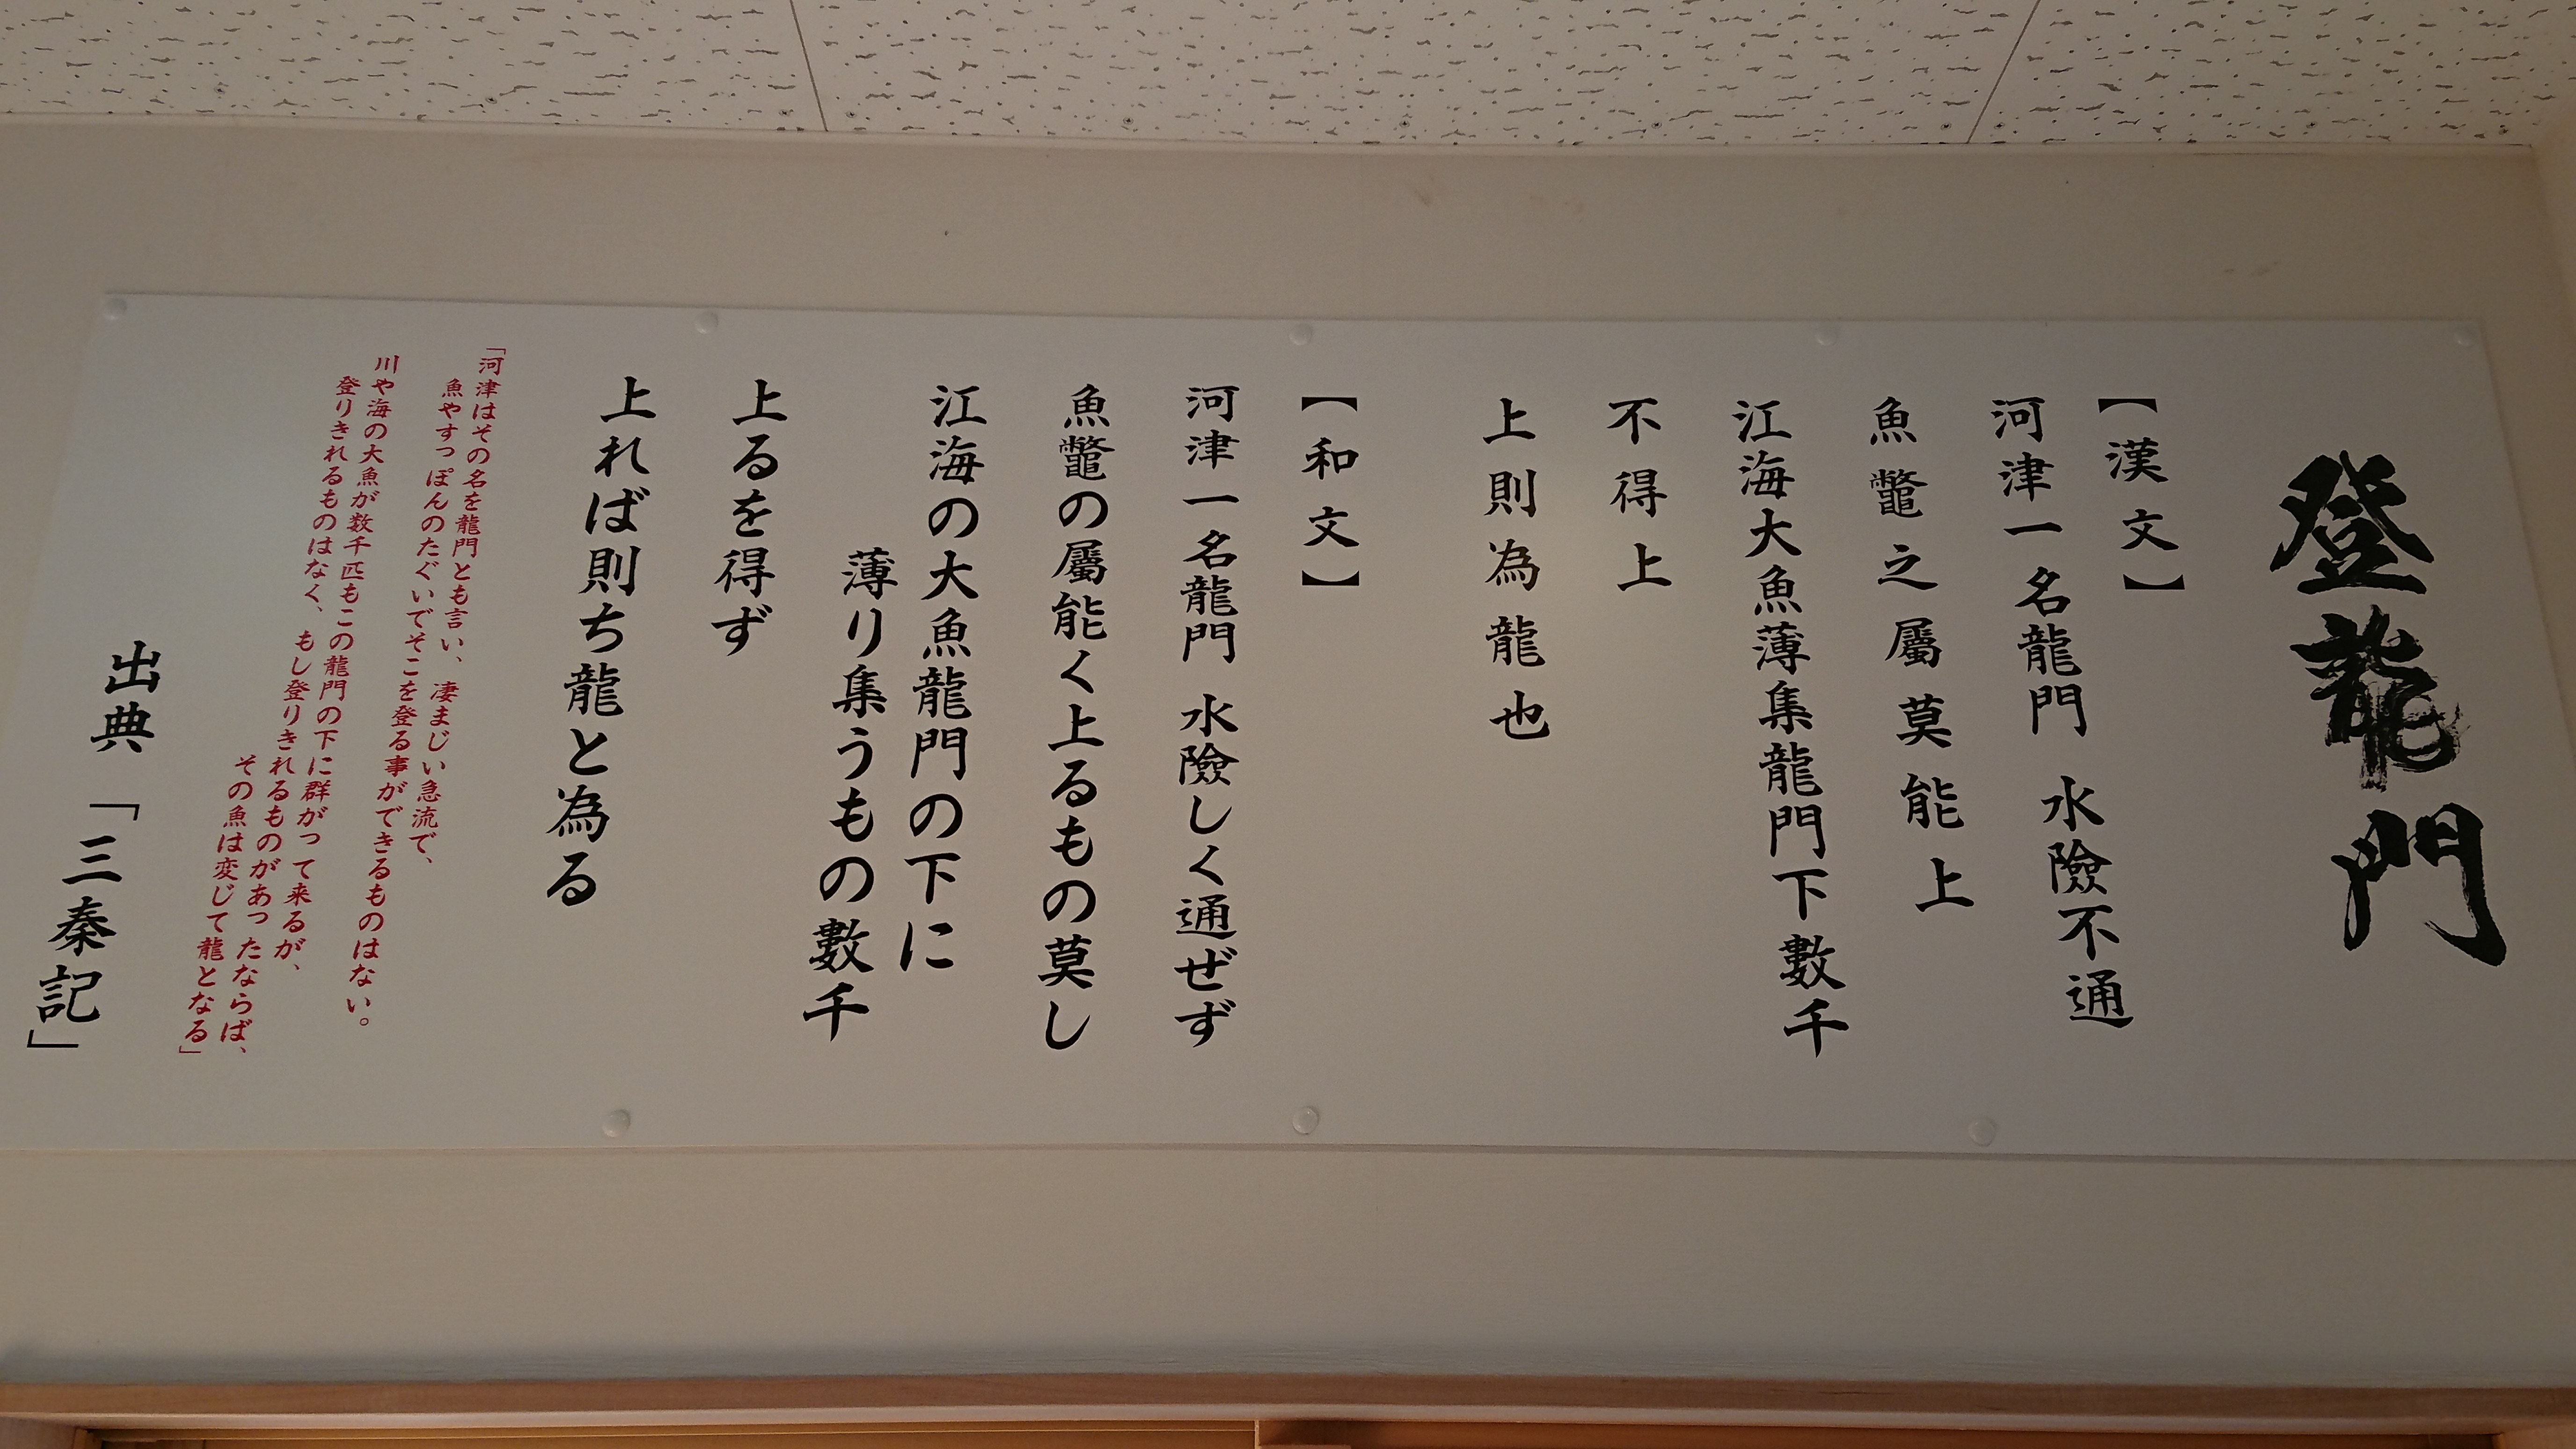 登龍門
【漢文】
河津一名龍門 水險不通
魚鼈之屬莫能上
江海大魚薄集龍門下數千
不得上
上則為龍也
【和文】
河津一名龍門 水險しく通ぜず
魚鼈の屬能く上るもの莫し
江海の大魚龍門の下に
薄り集うもの數千
上るを得ず
上れば則ち龍と為る
「河津はその名を龍門とも言い、凄まじい急流で、
魚やすっぽんのたぐいでそこを登る事ができるものはない。
川や海の大魚が数千匹もこの龍門の下に群がって来るが、
登りきれるものはなく、もし登りきれるものがあったならば、
その魚は変じて龍となる」
出典 「三秦記」